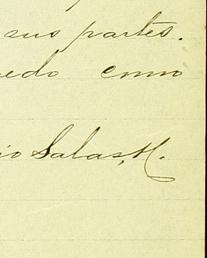 sus partes.
edo como
io Salas, M.